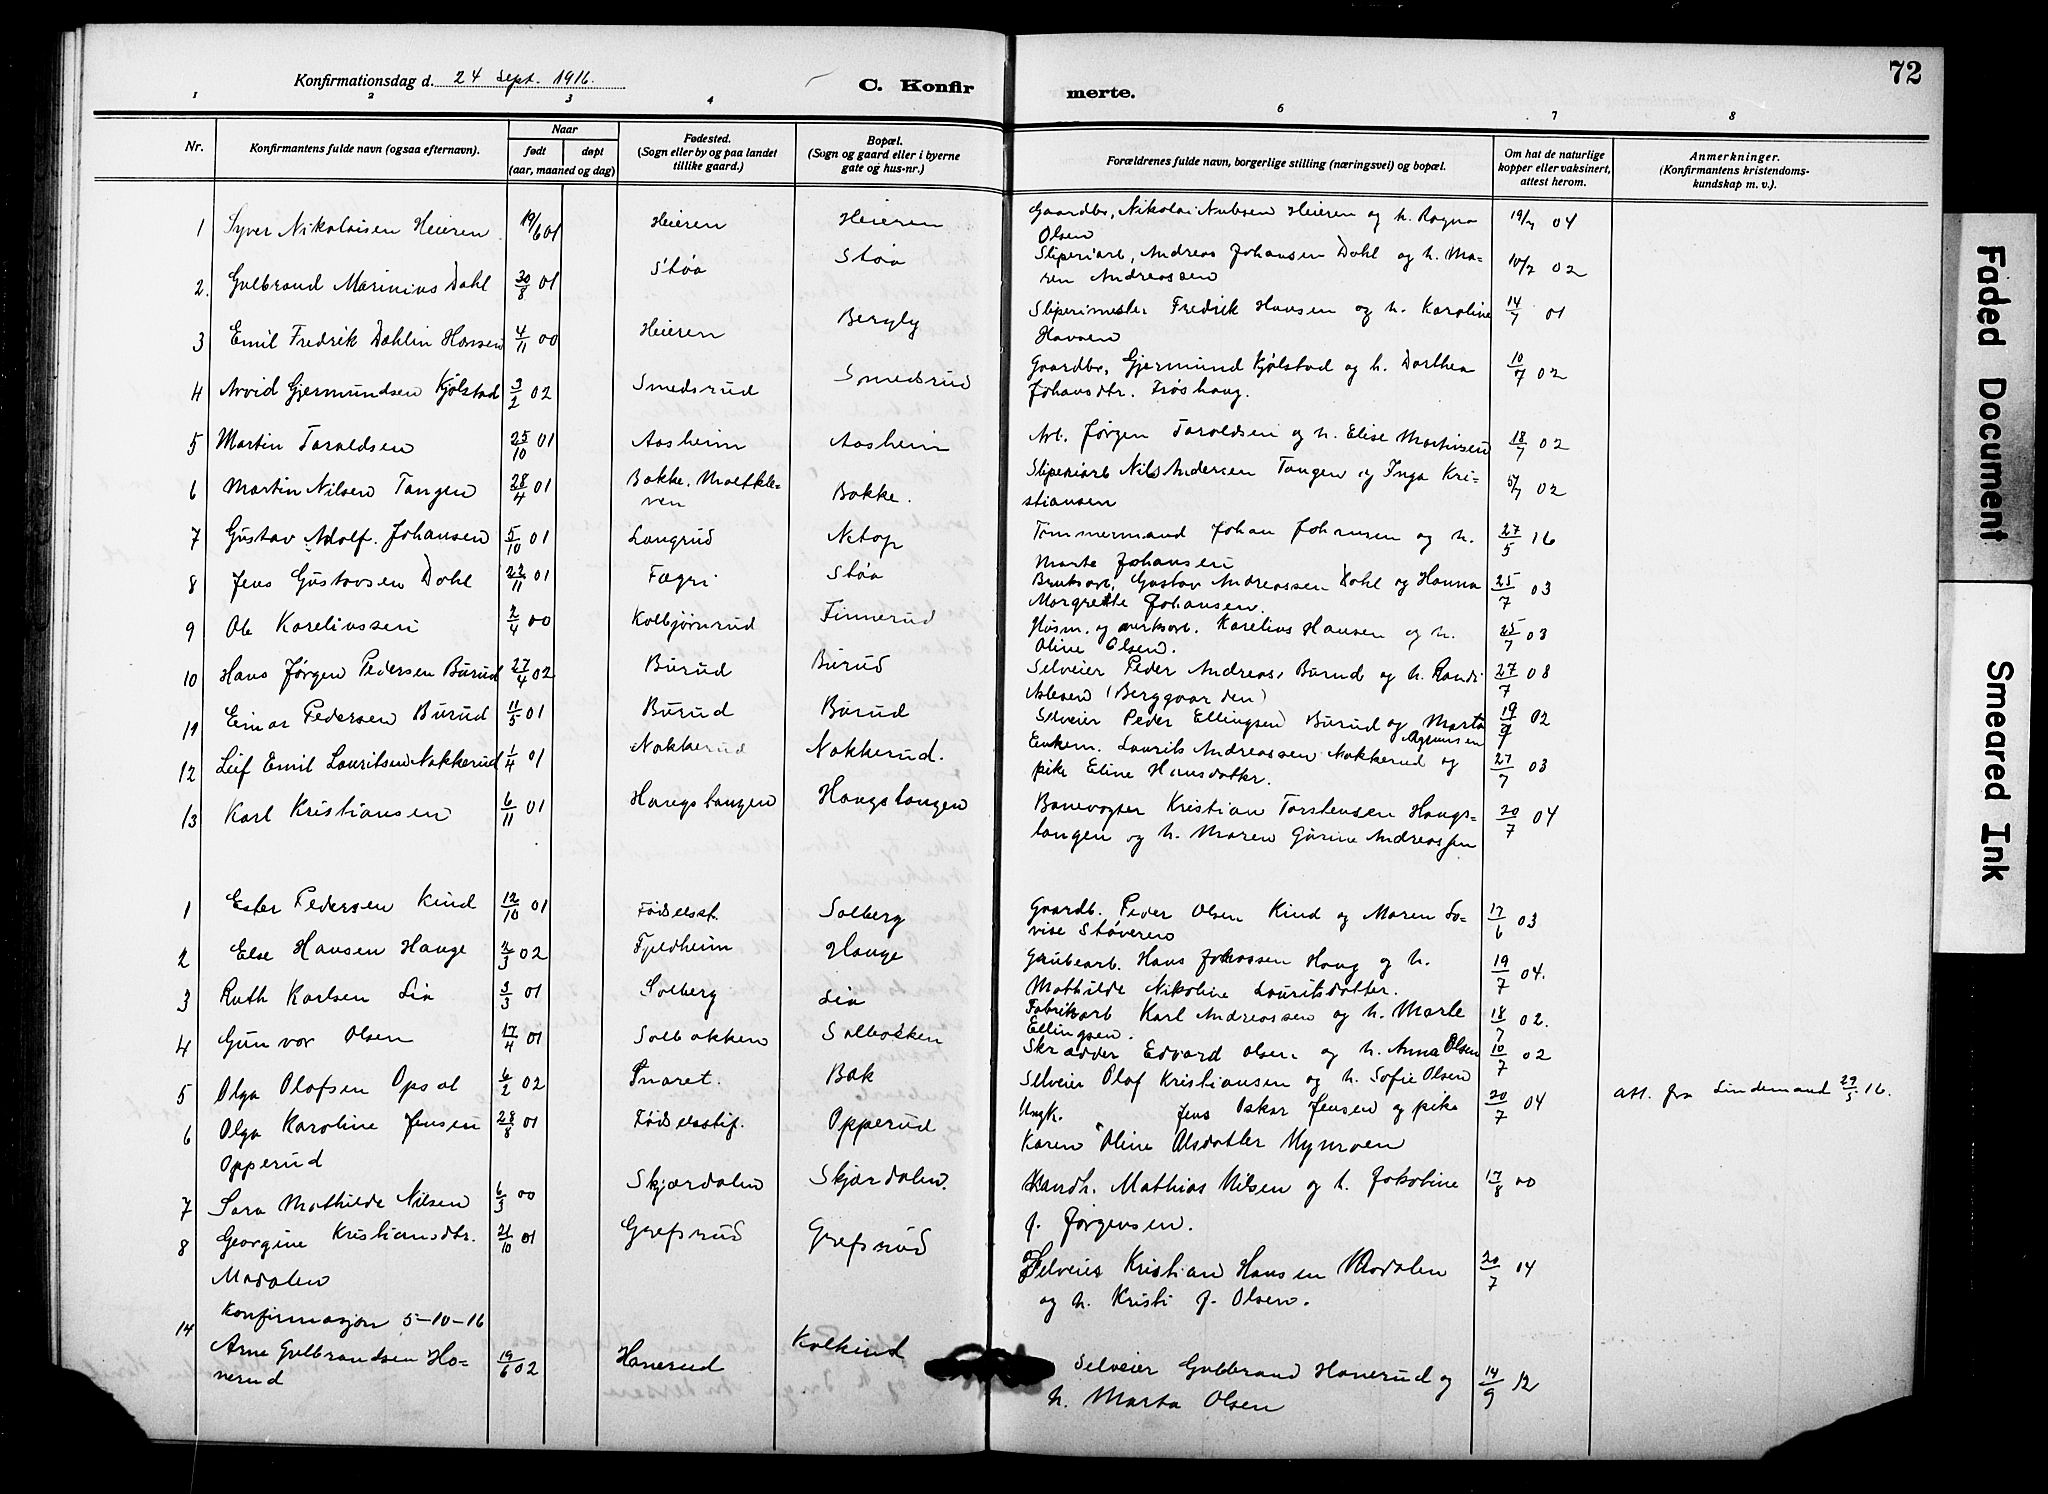 72
Konfirmationsdag d. 24 Sept. 1916.
C. Konfirmerte.
1 2 3 4 6 7 8
Nr.
Konfirmantens fulde navn (ogsaa efternavn).
Naar
født døpt
(aar, maaned og dag)
Fødested.
(Sogn eller by og paa landet
tillike gaard.)
Bopæl.
(Sogn og gaard eller i byerne
gate og hus-nr.)
Forældrenes fulde navn, borgerlige stilling (næringsvei) og bopæl.
Om hat de naturlige
kopper eller vaksinert,
attest herom.
Anmerkninger.
(Konfirmantens kristendoms-
kundskap m. v.).
1 Syver Nikolaisen Heieren 19/6 01 Heieren Heieren Gaardbr. Nikolai Heieren og h. Ragna 19/7 04
Olsen
2. Gulbrand Marinius Dahl 30/8 01 Støa Støa Sliperiarb. Andreas Johansen Dahl og h. Ma- 10/7 02
ren Andreassen
3 Emil Fredrik Dahlin Hansen 4/11 00 Heieren Bergly Sliperimester Fredrik Hansen og h. Karoline 14/7 01
Hansen
4 Arvid Gjermundsen Kjølstad 3/2 02 Smedsrud Smedsrud Gaardbr. Gjermund Kjølstad og h. Dorthea 10/7 02
Johansdtr. Frøshaug.
5 Martin Taraldsen 25/10 01 Aasheim Aasheim Arb. Jørgen Taraldsen og h. Elise Martinsen 18/7 02
6 Martin Nilsen Tangen 28/4 01 Bakke. Moltkle- Bakke. Sliperiarb Nils Andersen Tangen og Inga Kri- 5/7 02
ven stiansen
7 Gustav Adolf. Johansen 5/10 01 Langrud Netop Tømmermand Johan Johansen og h. 27/5 16
Marte Johansen
8 Jens Gustavsen Dahl 22/11 01 Fægri Støa Bruksarb. Gustav Andreassen Dahl og Hanna 25/7 03
Margrette Johansen.
9 Ole Kareliussen 2/4 00 Kolbjørnrud Finnerud Husm. og verksarb. Karelius Hansen og h. 25/7 03
Oline Olsen.
10 Hans Jørgen Pedersen Burud 27/4 02 Burud Burud Selveier Peder Andreas. Burud og h. Randi 27/7 08
Aslesen (Berggaarden)
11 Einar Pedersen Burud 11/5 01 Burud Burud Selveier Peder Ellingsen Burud og Marta 19/7 02
12 Leif Emil Lauritsen Nakkerud 1/4 01 Nakkerud Nakkerud. Enkem. Laurits Andreassen Nakkerud og 27/7 03
pike Eline Hansdatter.
13 Karl Kristiansen 6/11 01 Haugslangen Haugslangen Banevogter Kristian Torstensen Haugs- 20/7 04
langen og h. Maren Gurine Andreassen
1 Ester Pedersen Kind 12/10 01 Fødselsst. Solberg Gaardb. Peder Olsen Kind og Maren Lo- 17/6 03
vise Støveren
2 Else Hansen Hauge 2/3 02 Fjeldheim Hauge Grubearb. Hans Johassen Haug og h. 19/7 04.
Mathilde Nikoline Lauritsdatter.
3 Ruth Karlsen Lia 3/3 01 Solberg Lia Fabrikarb Karl Andreassen og h. Marte 18/7 02.
Ellingsen.
4 Gunvor Olsen 17/4 01 Solbakken Solbakken Skrædder Edvard Olsen og h. Anna Olsen 10/7 02
5 Olga Olafsen Opsal 6/2 02 Snaret. Bak Selveier Olaf Kristiansen og h. Sofie Olsen
6 Olga Karoline Jensen 28/8 01 Fødselsstif. Opperud Ungk. Jens Oskar Jensen og pike 20/7 04 att. fra Lindemand 29/5 16.
Opperud Karen Oline Olsdatter Myrmoen
7 Sara Mathilde Nilsen 6/3 00 Skjærdalen Skjærdalen. Handh. Mathias Nilsen og h. Jakobine 17/8 00
f. Jørgensen.
8 Georgine Kristiansdtr. 21/10 01 Grefsrud Grefsrud Selveier Kristian Hansen Modalen 20/7 04
Modalen og h. Kristi f. Olsen.
Konfirmasjon 5-10-16
14 Arne Gulbrandsen Ha- 19/6 02 Hanerud Kolkind Selveier Gulbrand Hanerud og 14/9 12
nerud h. Marta Olsen
Faded Document
Smeared Ink